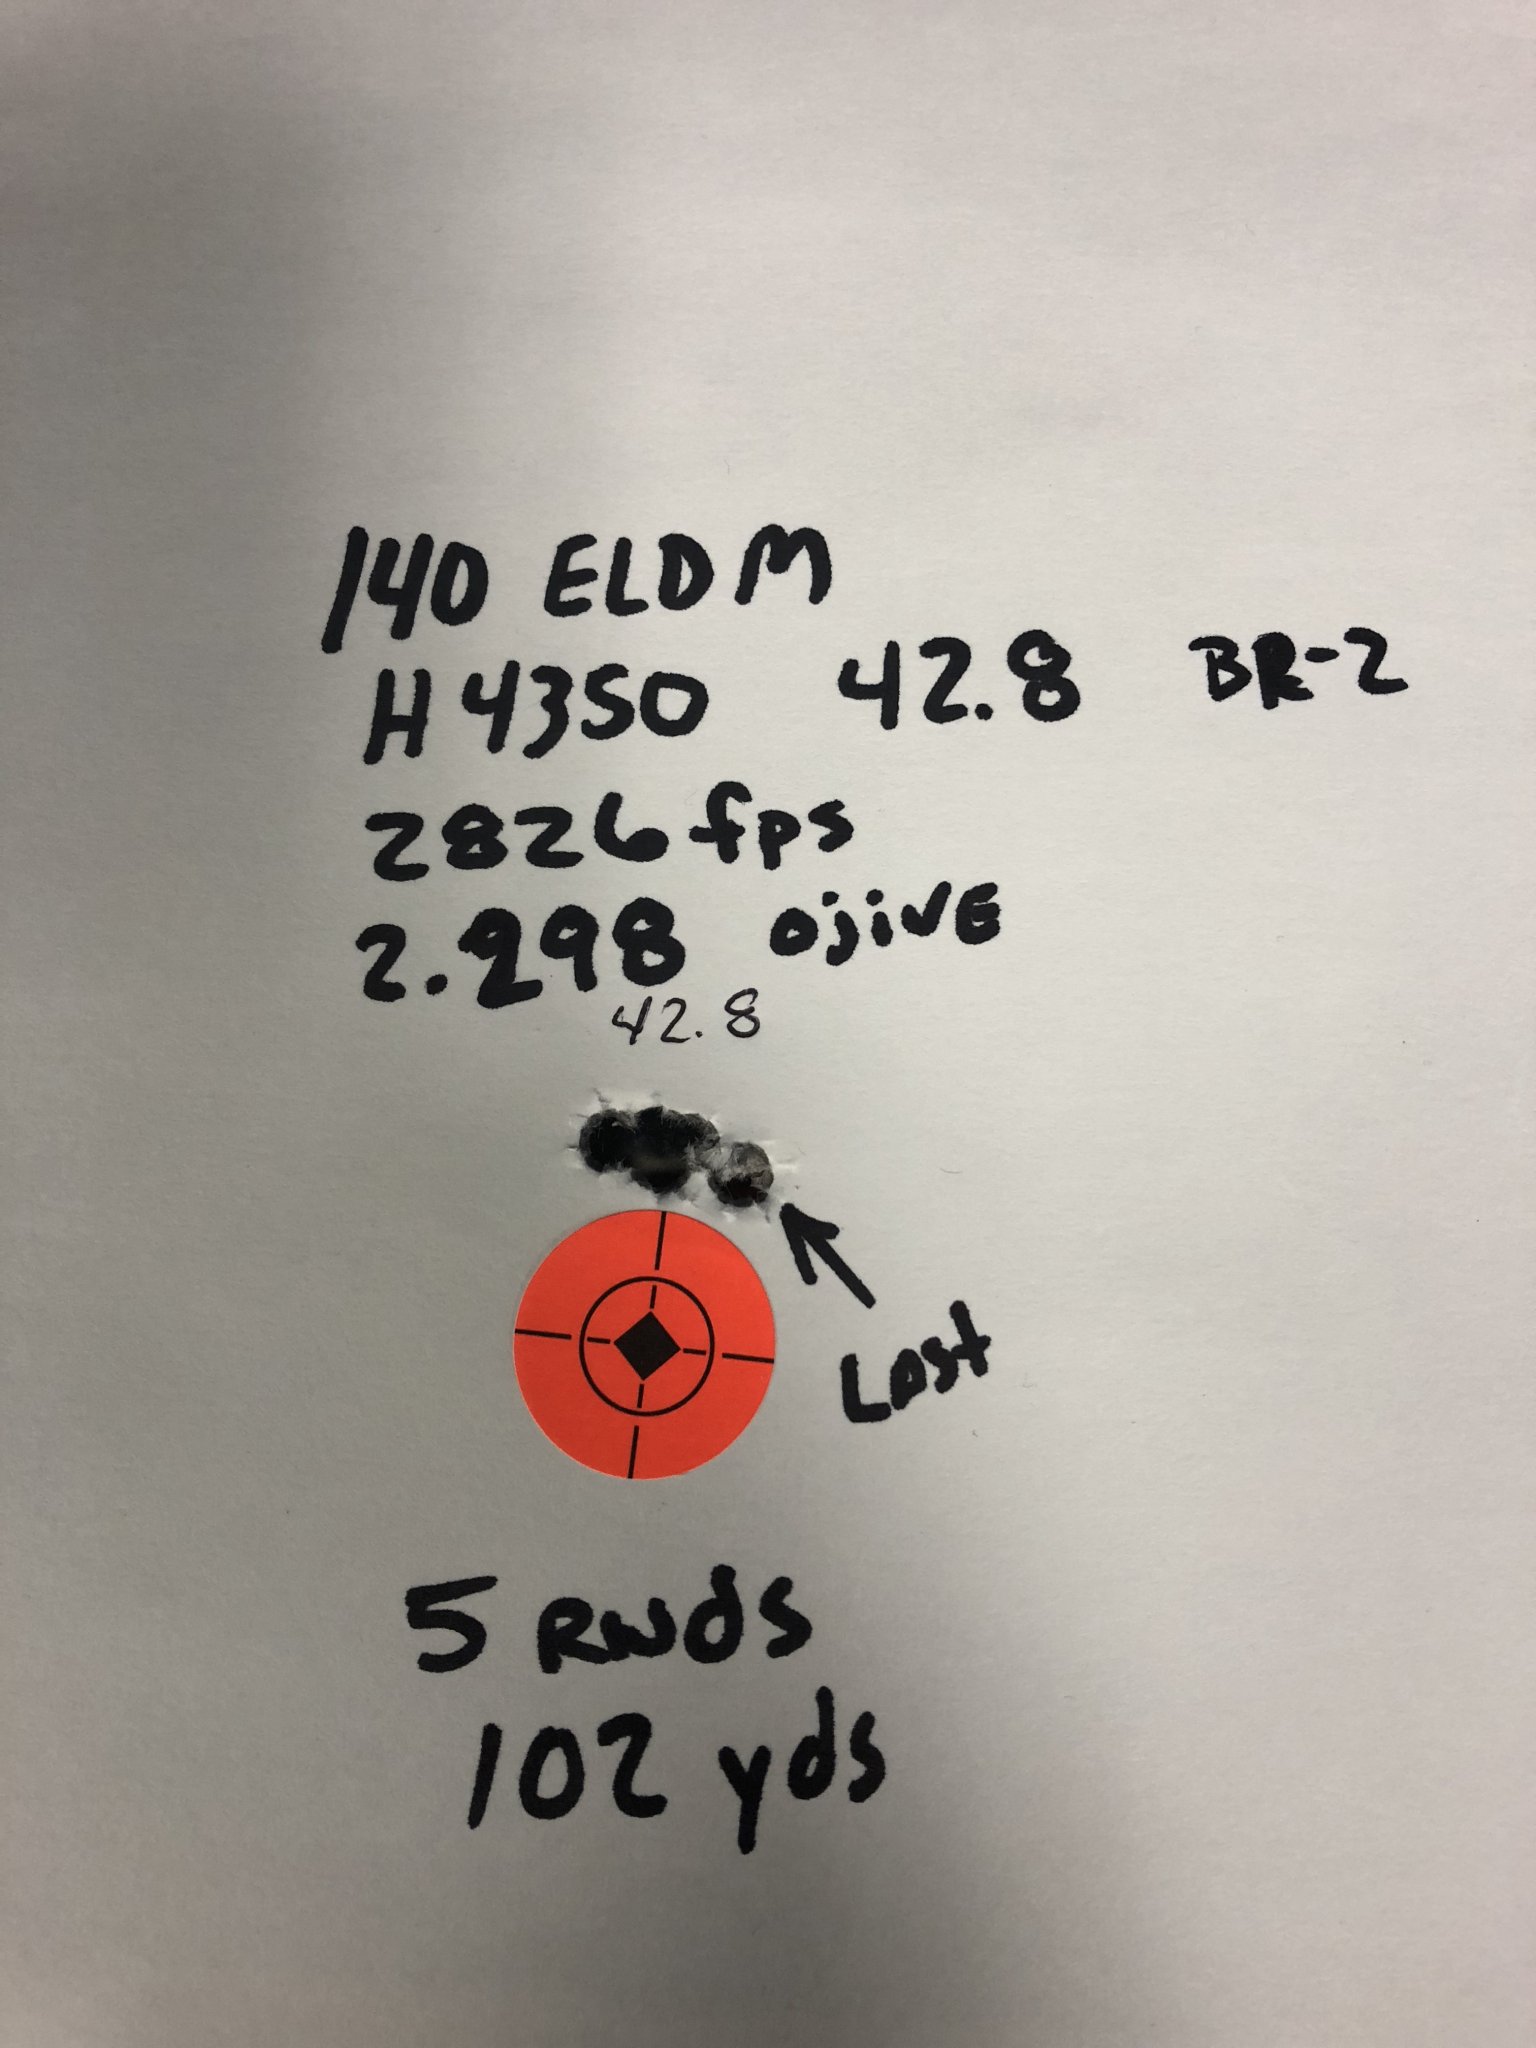 140 ELDM
H4350 42.8 BR-2
2826 fps
2.298 ojive
42.8
Last
5 RNdS
102 yds